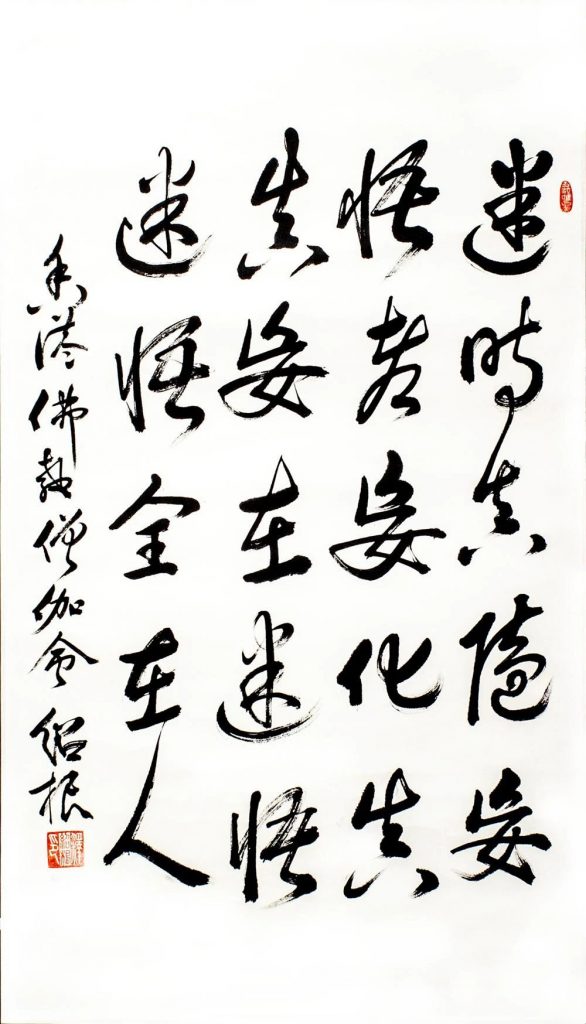 迷時真隱妄
悟若妄化真
真妄在迷悟
迷悟全在人
香港佛教僧伽會 紹根